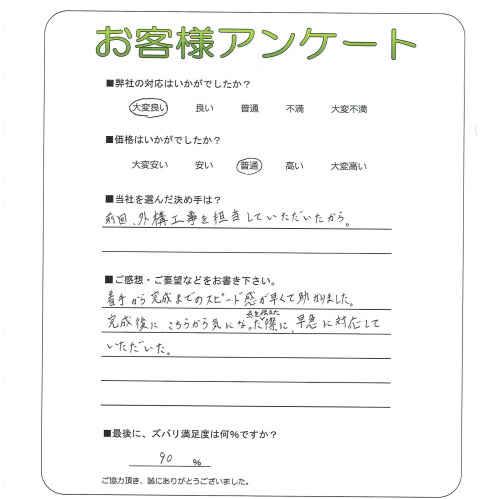 お客様アンケート
■弊社の対応はいかがでしたか？
大変良い　良い　普通　不満　大変不満
■価格はいかがでしたか？
大変安い　安い　普通　高い　大変高い
■当社を選んだ決め手は？
前回、外構工事を担当していただいたから。
■ご感想・ご要望などをお書き下さい。
着手から完成までのスピード感が早くて助かりました。
点を伝えた
完成後に こちらから気になった際に、早急に対応して
いただいた。
■最後に、ズバリ満足度は何%ですか？
90 %
ご協力頂き、誠にありがとうございました。